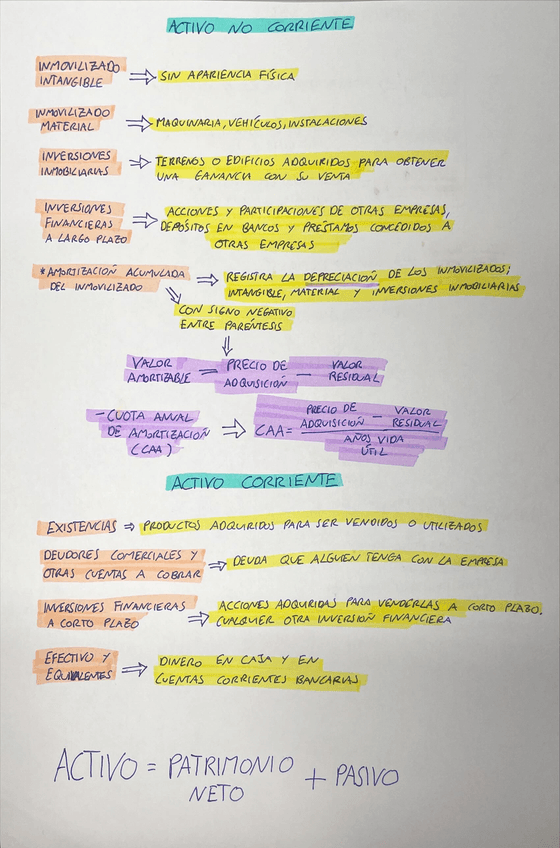 ACTIVO NO CORRIENTE
INMOVILIZADO
INTANGIBLE ⇒ SIN APARIENCIA FÍSICA
INMOVILIZADO
MATERIAL ⇒ MAQUINARIA, VEHÍCULOS, INSTALACIONES
INVERSIONES
INMOBILIARIAS ⇒ TERRENOS O EDIFICIOS ADQUIRIDOS PARA OBTENER
UNA GANANCIA CON SU VENTA
INVERSIONES
FINANCIERAS
A LARGO PLAZO ⇒ ACCIONES Y PARTICIPACIONES DE OTRAS EMPRESAS,
DEPÓSITOS EN BANCOS Y PRÉSTAMOS CONCEDIDOS A
OTRAS EMPRESAS
*AMORTIZACIÓN ACUMULADA
DEL INMOVILIZADO ⇒ REGISTRA LA DEPRECIACIÓN DE LOS INMOVILIZADOS;
INTANGIBLE, MATERIAL Y INVERSIONES INMOBILIARIAS
CON SIGNO NEGATIVO
ENTRE PARÉNTESIS
VALOR
AMORTIZABLE = PRECIO DE
ADQUISICIÓN − VALOR
RESIDUAL
- CUOTA ANUAL
DE AMORTIZACIÓN
(CAA) ⇒ CAA =
PRECIO DE
ADQUISICIÓN − VALOR
RESIDUAL
AÑOS VIDA
ÚTIL
ACTIVO CORRIENTE
EXISTENCIAS ⇒ PRODUCTOS ADQUIRIDOS PARA SER VENDIDOS O UTILIZADOS
DEUDORES COMERCIALES Y
OTRAS CUENTAS A COBRAR ⇒ DEUDA QUE ALGUIEN TENGA CON LA EMPRESA
INVERSIONES FINANCIERAS
A CORTO PLAZO ⇒ ACCIONES ADQUIRIDAS PARA VENDERLAS A CORTO PLAZO.
CUALQUIER OTRA INVERSIÓN FINANCIERA
EFECTIVO Y
EQUIVALENTES ⇒ DINERO EN CAJA Y EN
CUENTAS CORRIENTES BANCARIAS
ACTIVO = PATRIMONIO
NETO + PASIVO